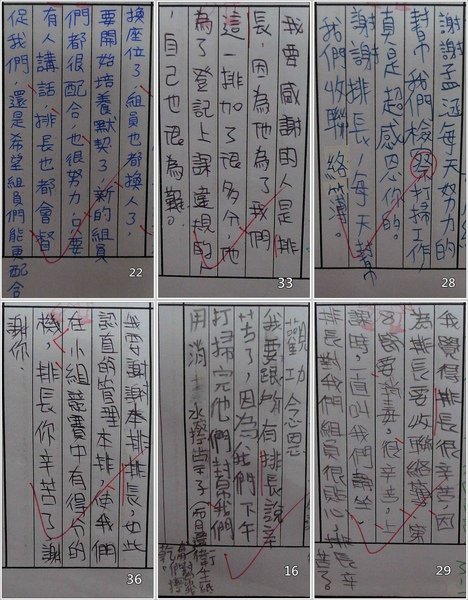 換座位了,組員也都換人了,
要開始培養默契了,新的組員
們都很配合也很努力,只要
有人講話,排長也都會督
促我們,還是希望組員們能更配合
22
我要感謝的人是排
長,因為他為了我們
這一排加了很多分,他
為了登記上課違規的
,自己也很為難。
33
謝謝孟涵每天努力的
幫我們檢察打掃工作
真是超感恩你的。
謝謝排長,每天幫
我們收聯絡簿
28
我要謝謝本排排長,如此
認真的管理本排,使我們
在小組競賽中有得分的
機,排長你辛苦了,謝
謝你.
36
觀功念恩
我要跟所有排長說辛
苦了,因為我們下午
打掃完他們討幫我們
用消毒水擦桌子
16
我覺得排長很辛苦,因
為排長要收聯絡簿、第
要消毒,很辛苦,上
課時,一直叫我們講坐
排長對我們組員很貼心,排長辛
苦了。
29